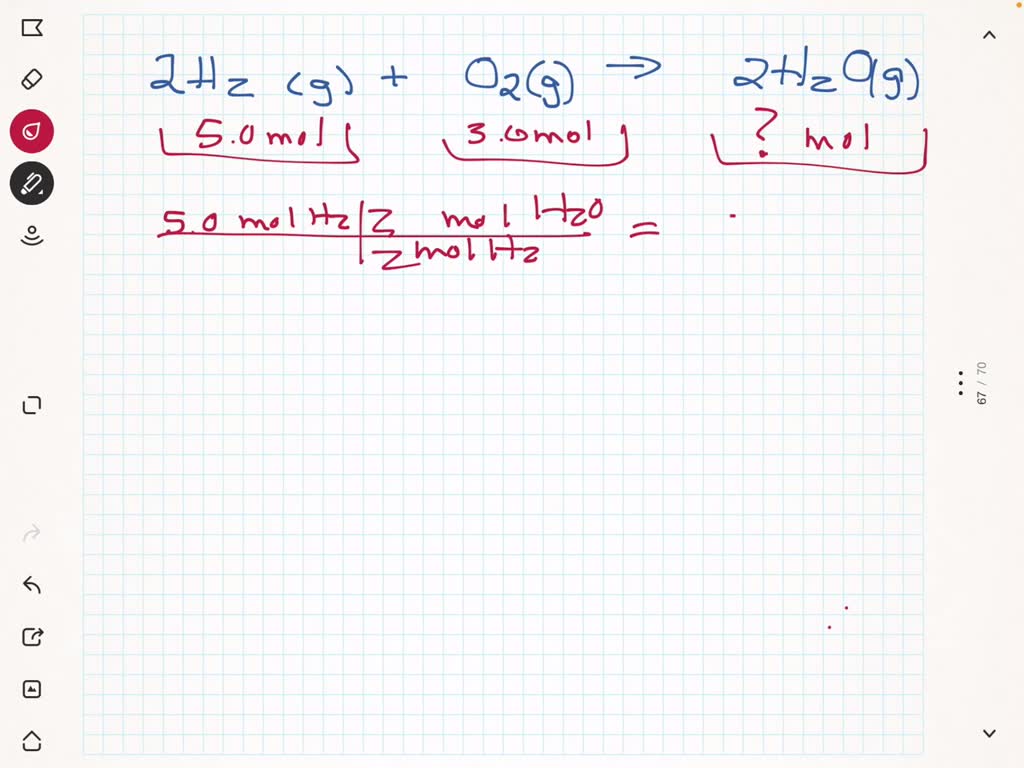 2H2 (g) + O2(g) → 2H2O(g)
5.0 mol 3.0 mol ? mol
5.0 mol H2 | 2 mol H2O =
2 mol H2
67 / 70